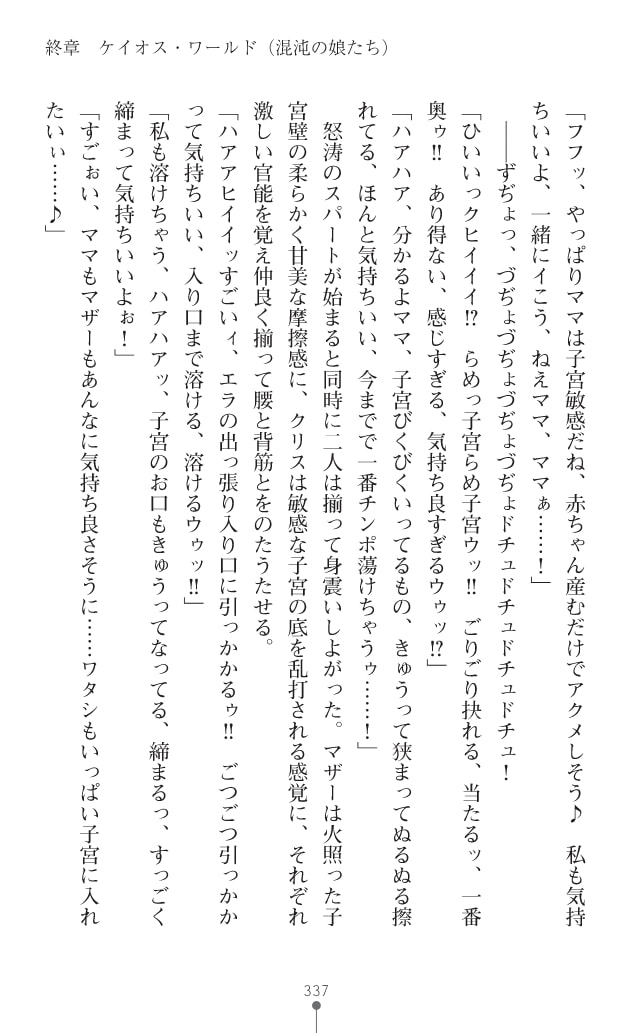 終章　ケイオス・ワールド（混沌の娘たち）
「フフッ、やっぱりママは子宮敏感だね、赤ちゃん産むだけでアクメしそう♪　私も気持
ちいいよ、一緒にイこう、ねえママ、ママぁ……！」
――ずぢょっ、づぢょづぢょづぢょづぢょドチュドチュドチュドチュ！
「ひいいっクヒイイイ!?　らめっ子宮らめ子宮ウッ!!　ごりごり抉れる、当たるッ、一番
奥ゥ!!　あり得ない、感じすぎる、気持ち良すぎるウゥッ!?」
「ハアハア、分かるよママ、子宮びくびくいってるもの、きゅうって狭まってぬるぬる擦
れてる、ほんと気持ちいい、今までで一番チンポ蕩けちゃうゥ……！」
怒涛のスパートが始まると同時に二人は揃って身震いしよがった。マザーは火照った子
宮壁の柔らかく甘美な摩擦感に、クリスは敏感な子宮の底を乱打される感覚に、それぞれ
激しい官能を覚え仲良く揃って腰と背筋とをのたうたせる。
「ハアアヒイイッすごいィ、エラの出っ張り入り口に引っかかるゥ!!　ごつごつ引っかか
って気持ちいい、入り口まで溶ける、溶けるウゥッ!!」
「私も溶けちゃう、ハアハアッ、子宮のお口もきゅうってなってる、締まるっ、すっごく
締まって気持ちいいよぉ！」
「すごぉい、ママもマザーもあんなに気持ち良さそうに……ワタシもいっぱい子宮に入れ
たいぃ……♪」
337